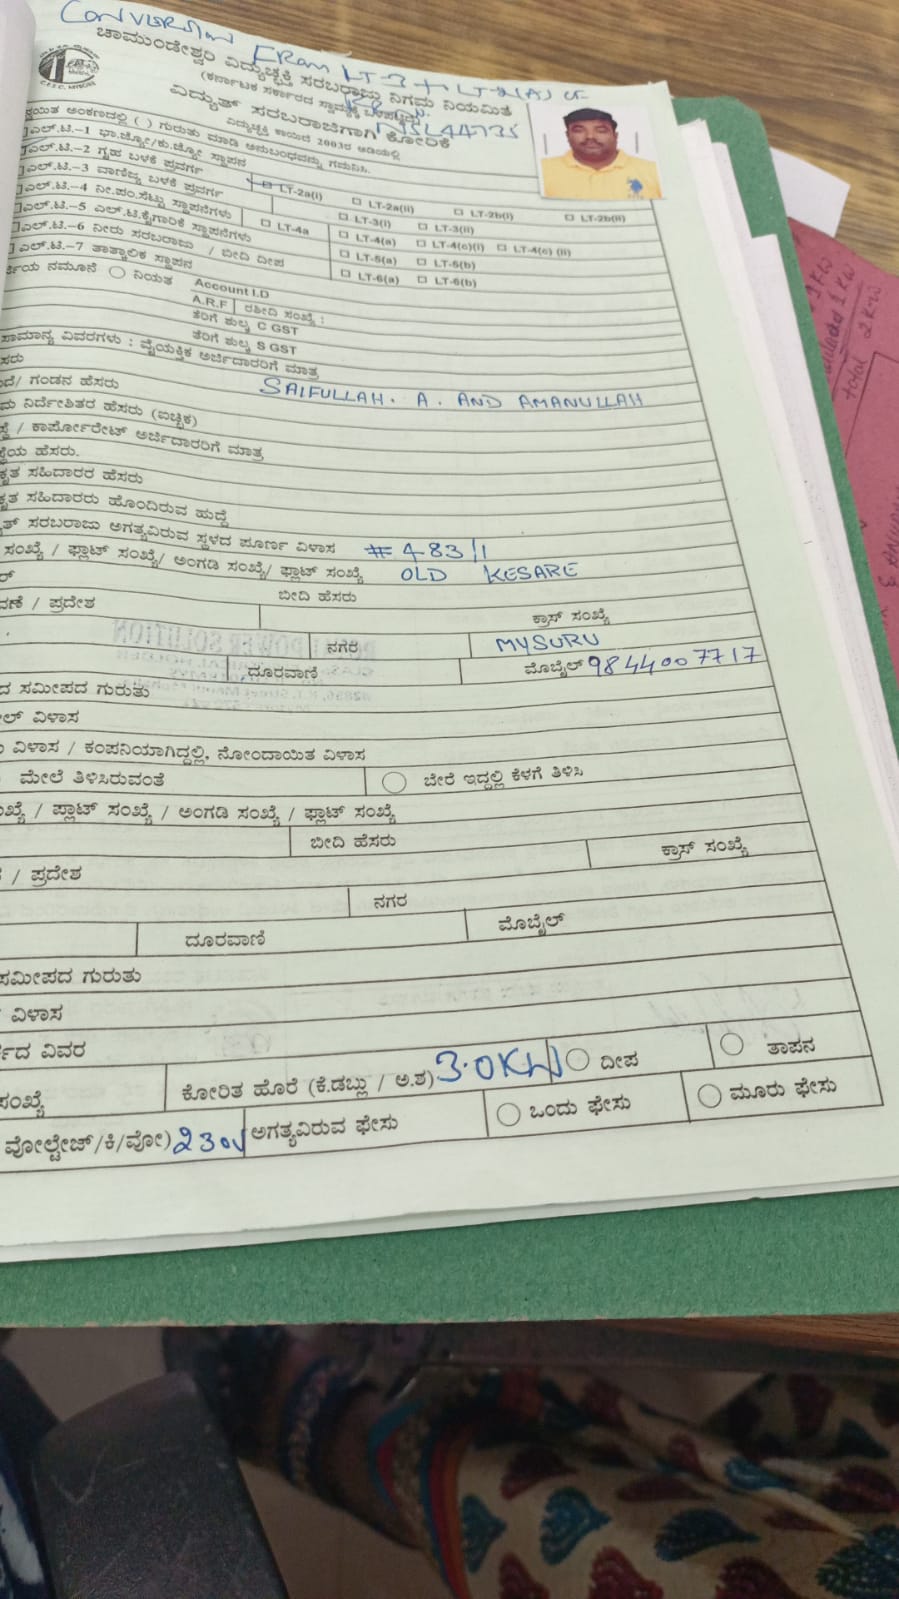 CONVERSION FROM LT-3 TO LT-2(A) OF
ಚಾಮುಂಡೇಶ್ವರಿ ವಿದ್ಯುಚ್ಛಕ್ತಿ ಸರಬರಾಜು ನಿಗಮ ನಿಯಮಿತ
(ಕರ್ನಾಟಕ ಸರ್ಕಾರದ ಸ್ವಾಮ್ಯಕ್ಕೆ ಒಳಪಟ್ಟಿದೆ)
ವಿದ್ಯುತ್ ಸರಬರಾಜಿಗಾಗಿ ಕೋರಿಕೆ
ವಿದ್ಯುಚ್ಛಕ್ತಿ ಕಾಯಿದೆ 2003ರ ಅಡಿಯಲ್ಲಿ
ಅಂಕಣದಲ್ಲಿ ( ) ಗುರುತು ಮಾಡಿ ಅನುಬಂಧವನ್ನು ಗಮನಿಸಿ.
ಎಲ್.ಟಿ.-1 ಭಾ.ಜ್ಯೋ/ಕು.ಜ್ಯೋ ಸ್ಥಾಪನ
ಎಲ್.ಟಿ.-2 ಗೃಹ ಬಳಕೆ ಪ್ರವರ್ಗ LT-2a(i) LT-2a(ii) LT-2b(i) LT-2b(ii)
ಎಲ್.ಟಿ.-3 ವಾಣಿಜ್ಯ ಬಳಕೆ ಪ್ರವರ್ಗ LT-3(i) LT-3(ii)
ಎಲ್.ಟಿ.-4 ನೀ.ಪಂ.ಸೆಟ್ಟು ಸ್ಥಾಪನೆಗಳು LT-4a LT-4(a) LT-4(c)(i) LT-4(c) (ii)
ಎಲ್.ಟಿ.-5 ಎಲ್.ಟಿ.ಕೈಗಾರಿಕೆ ಸ್ಥಾಪನೆಗಳು LT-5(a) LT-5(b)
ಎಲ್.ಟಿ.-6 ನೀರು ಸರಬರಾಜು / ಬೀದಿ ದೀಪ LT-6(a) LT-6(b)
ಎಲ್.ಟಿ.-7 ತಾತ್ಕಾಲಿಕ ಸ್ಥಾಪನ
ನಮೂನೆ ನಿಯತ Account I.D
A.R.F ರಶೀದಿ ಸಂಖ್ಯೆ :
ತೆರಿಗೆ ಶುಲ್ಕ C GST
ತೆರಿಗೆ ಶುಲ್ಕ S GST
ಸಾಮಾನ್ಯ ವಿವರಗಳು : ವೈಯಕ್ತಿಕ ಅರ್ಜಿದಾರರಿಗೆ ಮಾತ್ರ
SAIFULLAH. A. AND AMANULLAH
/ ಗಂಡನ ಹೆಸರು
ನಿರ್ದೇಶಿತರ ಹೆಸರು (ಐಚ್ಛಿಕ)
/ ಕಾರ್ಪೋರೇಟ್ ಅರ್ಜಿದಾರರಿಗೆ ಮಾತ್ರ
ಹೆಸರು.
ಸಹಿದಾರರ ಹೆಸರು
ಸಹಿದಾರರು ಹೊಂದಿರುವ ಹುದ್ದೆ
ಸರಬರಾಜು ಅಗತ್ಯವಿರುವ ಸ್ಥಳದ ಪೂರ್ಣ ವಿಳಾಸ # 483/1
ಸಂಖ್ಯೆ / ಫ್ಲಾಟ್ ಸಂಖ್ಯೆ/ ಅಂಗಡಿ ಸಂಖ್ಯೆ/ ಫ್ಲಾಟ್ ಸಂಖ್ಯೆ OLD KESARE
ಬೀದಿ ಹೆಸರು
/ ಪ್ರದೇಶ ಕ್ರಾಸ್ ಸಂಖ್ಯೆ
ನಗರ MYSURU
ದೂರವಾಣಿ ಮೊಬೈಲ್ 9844007717
ಸಮೀಪದ ಗುರುತು
ವಿಳಾಸ
ವಿಳಾಸ / ಕಂಪನಿಯಾಗಿದ್ದಲ್ಲಿ, ನೋಂದಾಯಿತ ವಿಳಾಸ
ಮೇಲೆ ತಿಳಿಸಿರುವಂತೆ ಬೇರೆ ಇದ್ದಲ್ಲಿ ಕೆಳಗೆ ತಿಳಿಸಿ
/ ಪ್ಲಾಟ್ ಸಂಖ್ಯೆ / ಅಂಗಡಿ ಸಂಖ್ಯೆ / ಫ್ಲಾಟ್ ಸಂಖ್ಯೆ
ಬೀದಿ ಹೆಸರು
/ ಪ್ರದೇಶ ಕ್ರಾಸ್ ಸಂಖ್ಯೆ
ನಗರ
ದೂರವಾಣಿ ಮೊಬೈಲ್
ಸಮೀಪದ ಗುರುತು
ವಿಳಾಸ
ವಿವರ
ಸಂಖ್ಯೆ ಕೋರಿತ ಹೊರೆ (ಕೆ.ಡಬ್ಲು / ಅ.ಶ) 3.0KW ದೀಪ ತಾಪನ
ವೋಲ್ಟೇಜ್/ಕಿ/ವೋ) 230V ಅಗತ್ಯವಿರುವ ಫೇಸು ಒಂದು ಫೇಸು ಮೂರು ಫೇಸು
total 2 KW